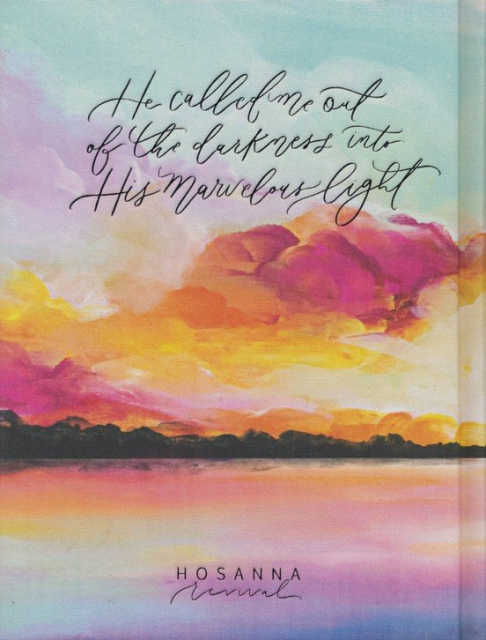 He called me out
of the darkness into
His Marvelous light
HOSANNA
revival